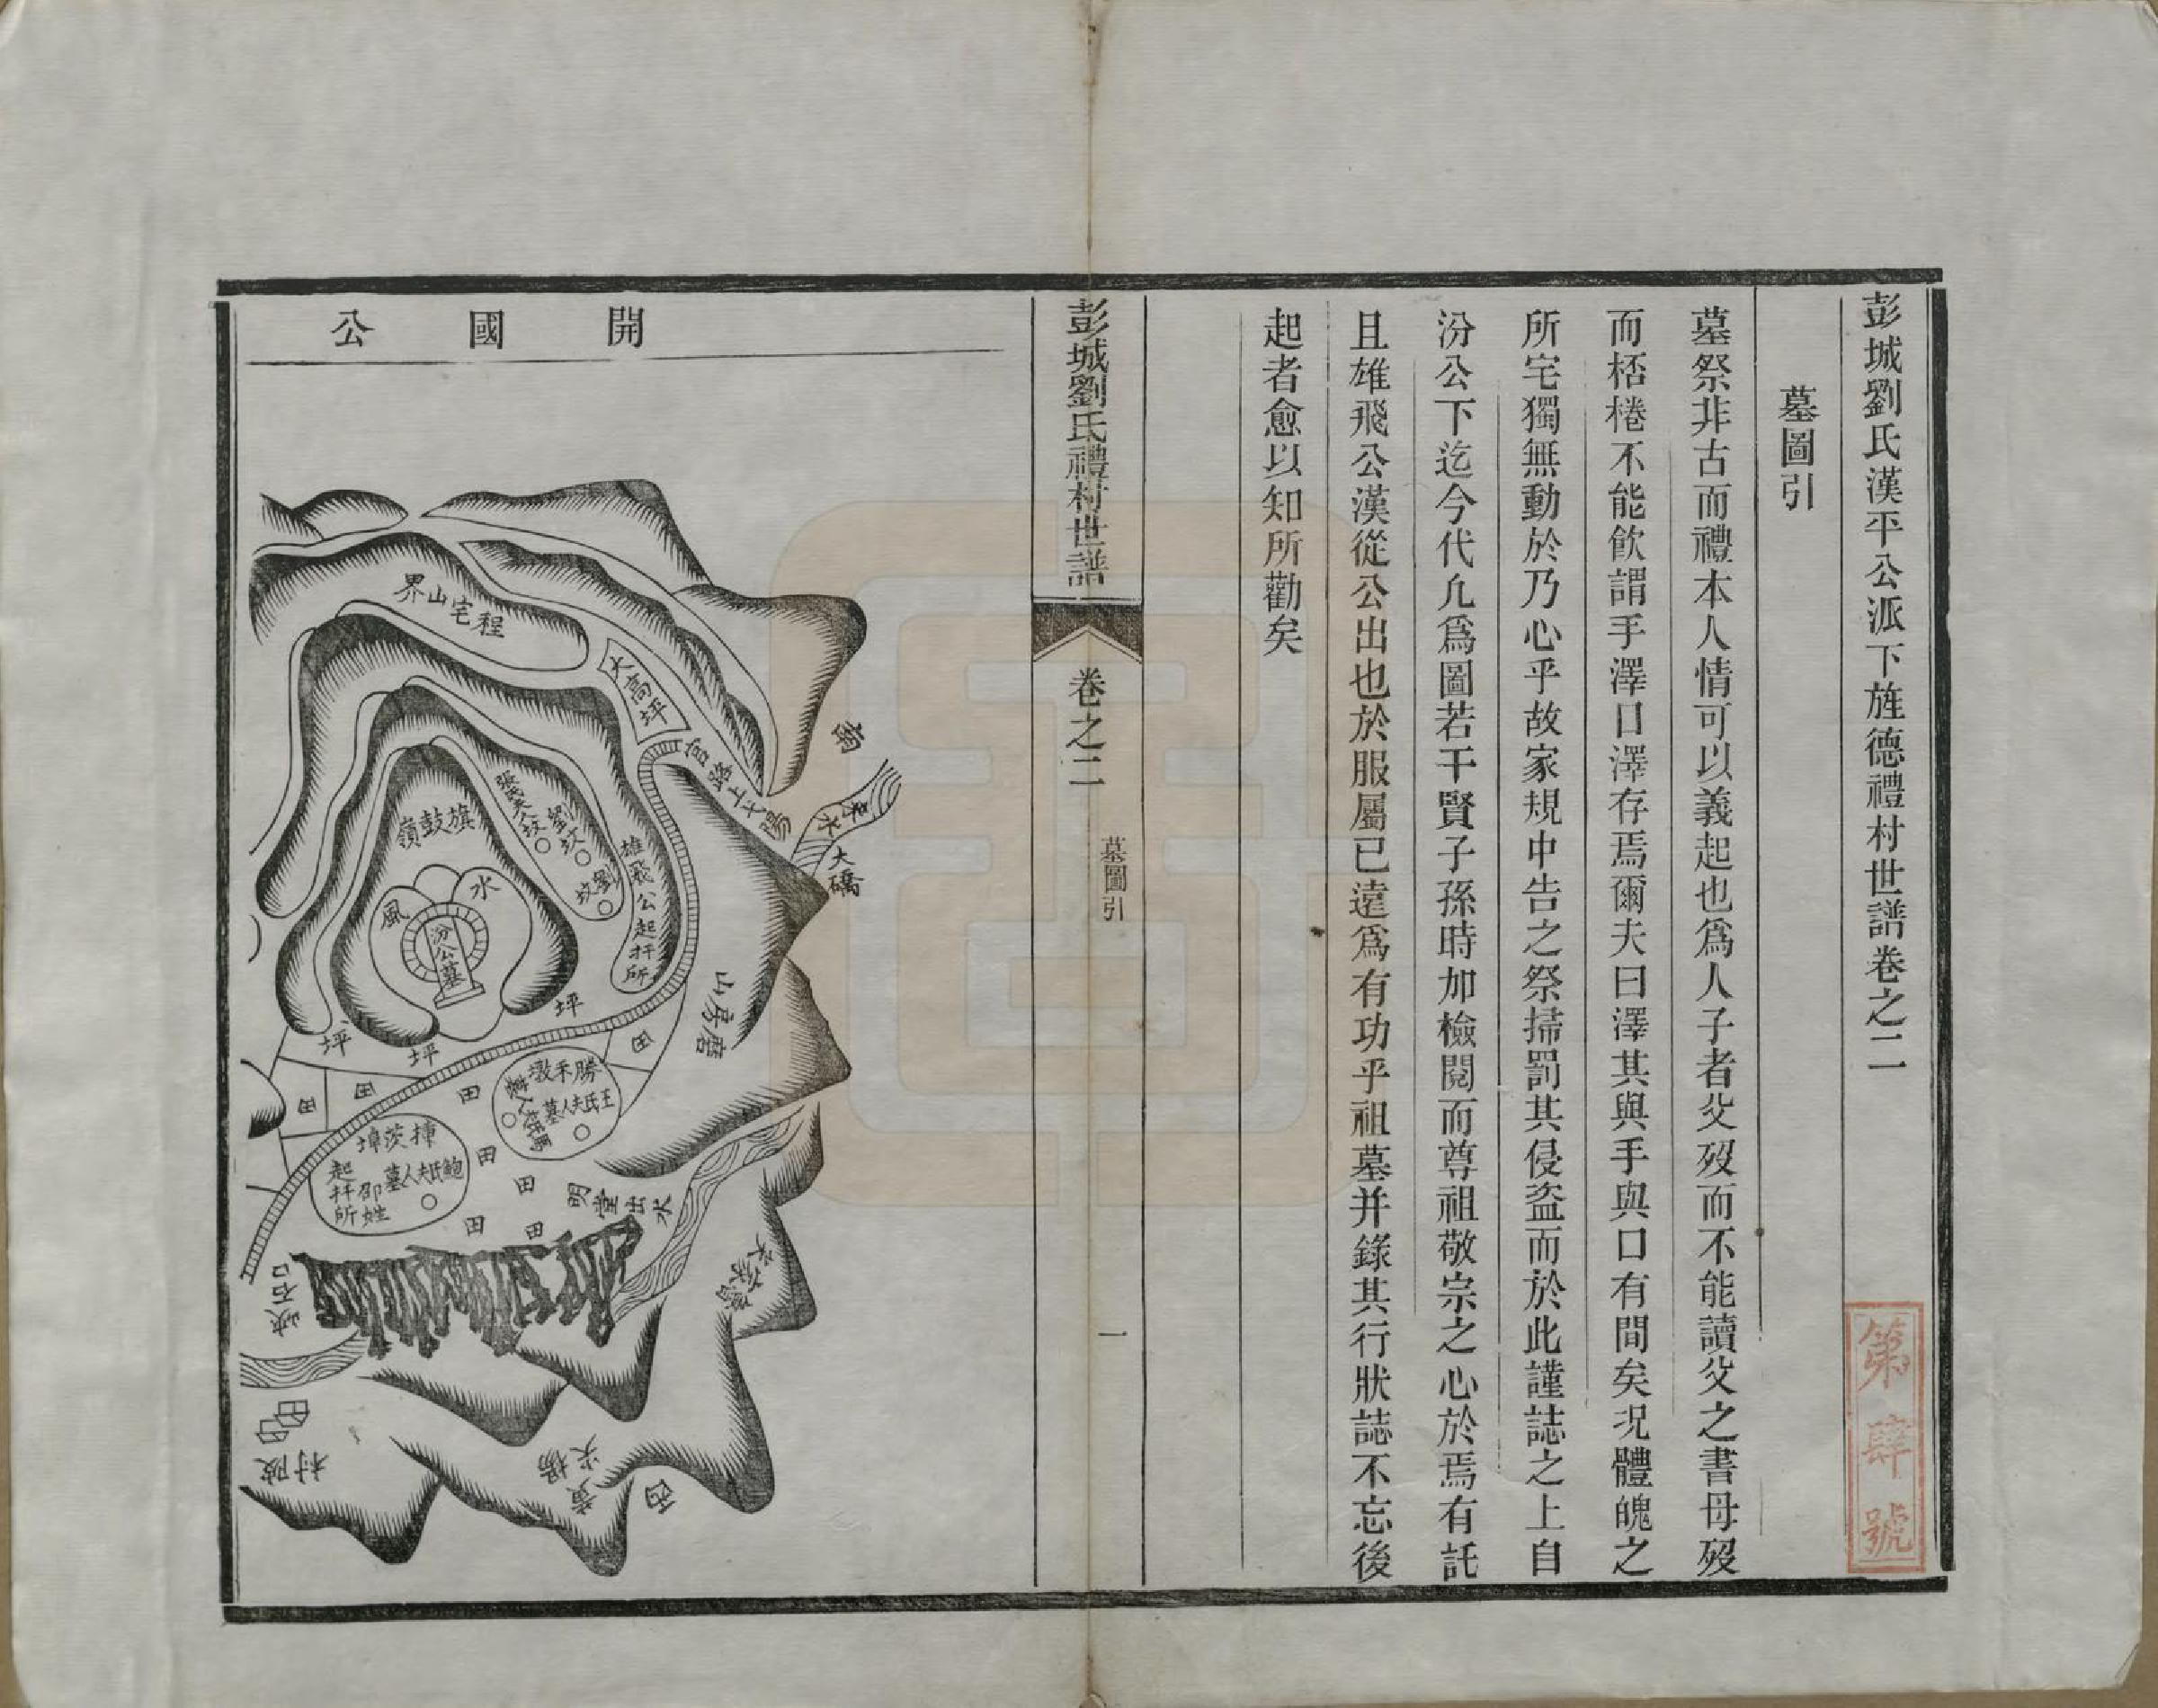 彭城劉氏漢平公派下旌德禮村世譜卷之二
墓圖引
墓祭非古而禮本人情可以義起也爲人子者父歿而不能讀父之書母歿
而桮棬不能飲謂手澤口澤存焉爾夫曰澤其與手與口有間矣況體魄之
所宅獨無動於乃心乎故家規中告之祭掃罰其侵盜而於此謹誌之上自
汾公下迄今代凢爲圖若干賢子孫時加檢閱而尊祖敬宗之心於焉有託
且雄飛公漢從公出也於服屬已遠爲有功乎祖墓并錄其行狀誌不忘後
起者愈以知所勸矣
第肆號
彭城劉氏禮村世譜
卷之二
墓圖引
一
開國公
程宅山界
大高坪
官路上七陽
南
來水
大礄
旗鼓嶺
張氏夫人坟
劉坟
劉坟
雄飛公起扦所
水
風
汾公墓
坪
坪
坪
磨房山
田
田
田
田
勝禾墩
王氏夫人墓
揰茨埠
鮑氏夫人墓
邵姓
起扦所
田
田
田
田
明堂出水
石峽
村陂